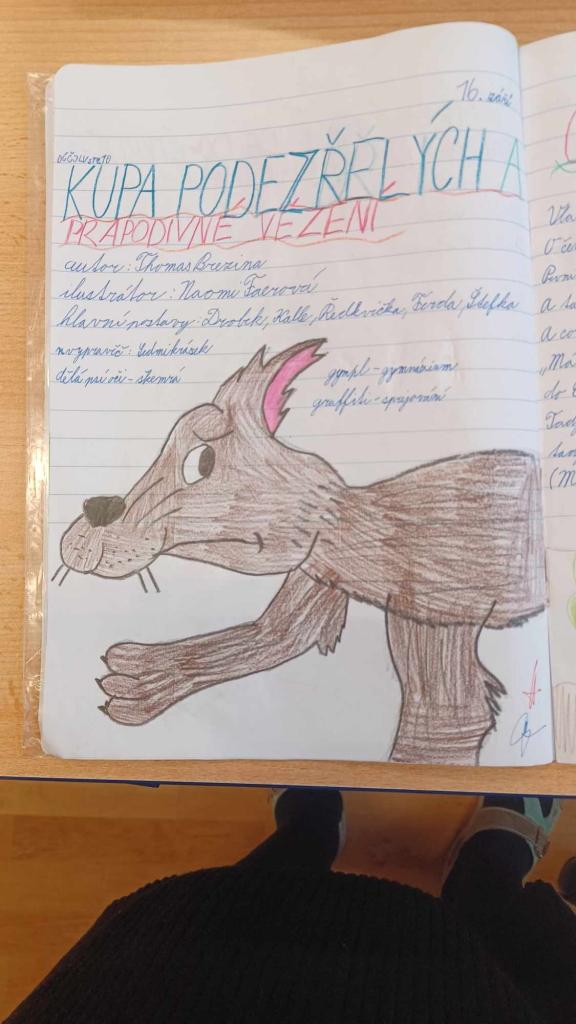 16. září
KUPA PODEZŘELÝCH A
PRAPODIVNÉ VĚZENÍ
autor: Thomas Brezina
ilustrátor: Naomi Faerová
hlavní postavy: Drobek, Kalle, Ředkvička, Ferda, Štefka
nvypravěč: Sedmikrásek
dělá psí oči - škemrá
gympl - gymnázium
graffiti - sprejování
Vla
V če
První
A ta
A co
„Má
do
Tady
tam
(M